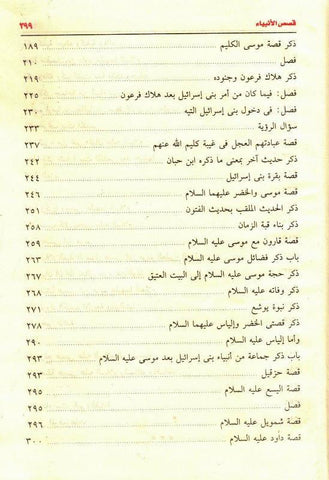 قصص الأنبياء ٢٩٩
ذكر قصة موسى الكليم ١٨٩
فصل ٢١٠
ذكر هلاك فرعون وجنوده ٢١٩
فصل: فيما كان من أمر بنى إسرائيل بعد هلاك فرعون ٢٢٥
فصل: فى دخول بنى إسرائيل التيه ٢٣٠
سؤال الرؤية ٢٣٣
قصة عبادتهم العجل فى غيبة كليم الله عنهم ٢٣٧
ذكر حديث آخر بمعنى ما ذكره ابن حبان ٢٤٢
قصة بقرة بنى إسرائيل ٢٤٤
قصة موسى والخضر عليهما السلام ٢٤٦
ذكر الحديث الملقب بحديث الفتون ٢٥١
ذكر بناء قبة الزمان ٢٥٨
قصة قارون مع موسى عليه السلام ٢٥٩
باب ذكر فضائل موسى عليه السلام ٢٦٣
ذكر حجة موسى عليه السلام إلى البيت العتيق ٢٦٧
ذكر وفاته عليه السلام ٢٦٨
ذكر نبوة يوشع ٢٧١
ذكر قصتى الخضر وإلياس عليهما السلام ٢٧٨
وأما إلياس عليه السلام ٢٩٠
باب ذكر جماعة من أنبياء بنى إسرائيل بعد موسى عليه السلام ٢٩٣
قصة حزقيل ٢٩٣
قصة اليسع عليه السلام ٢٩٥
فصل ٢٩٥
قصة شمويل عليه السلام ٢٩٦
قصة داود عليه السلام ٣٠٠